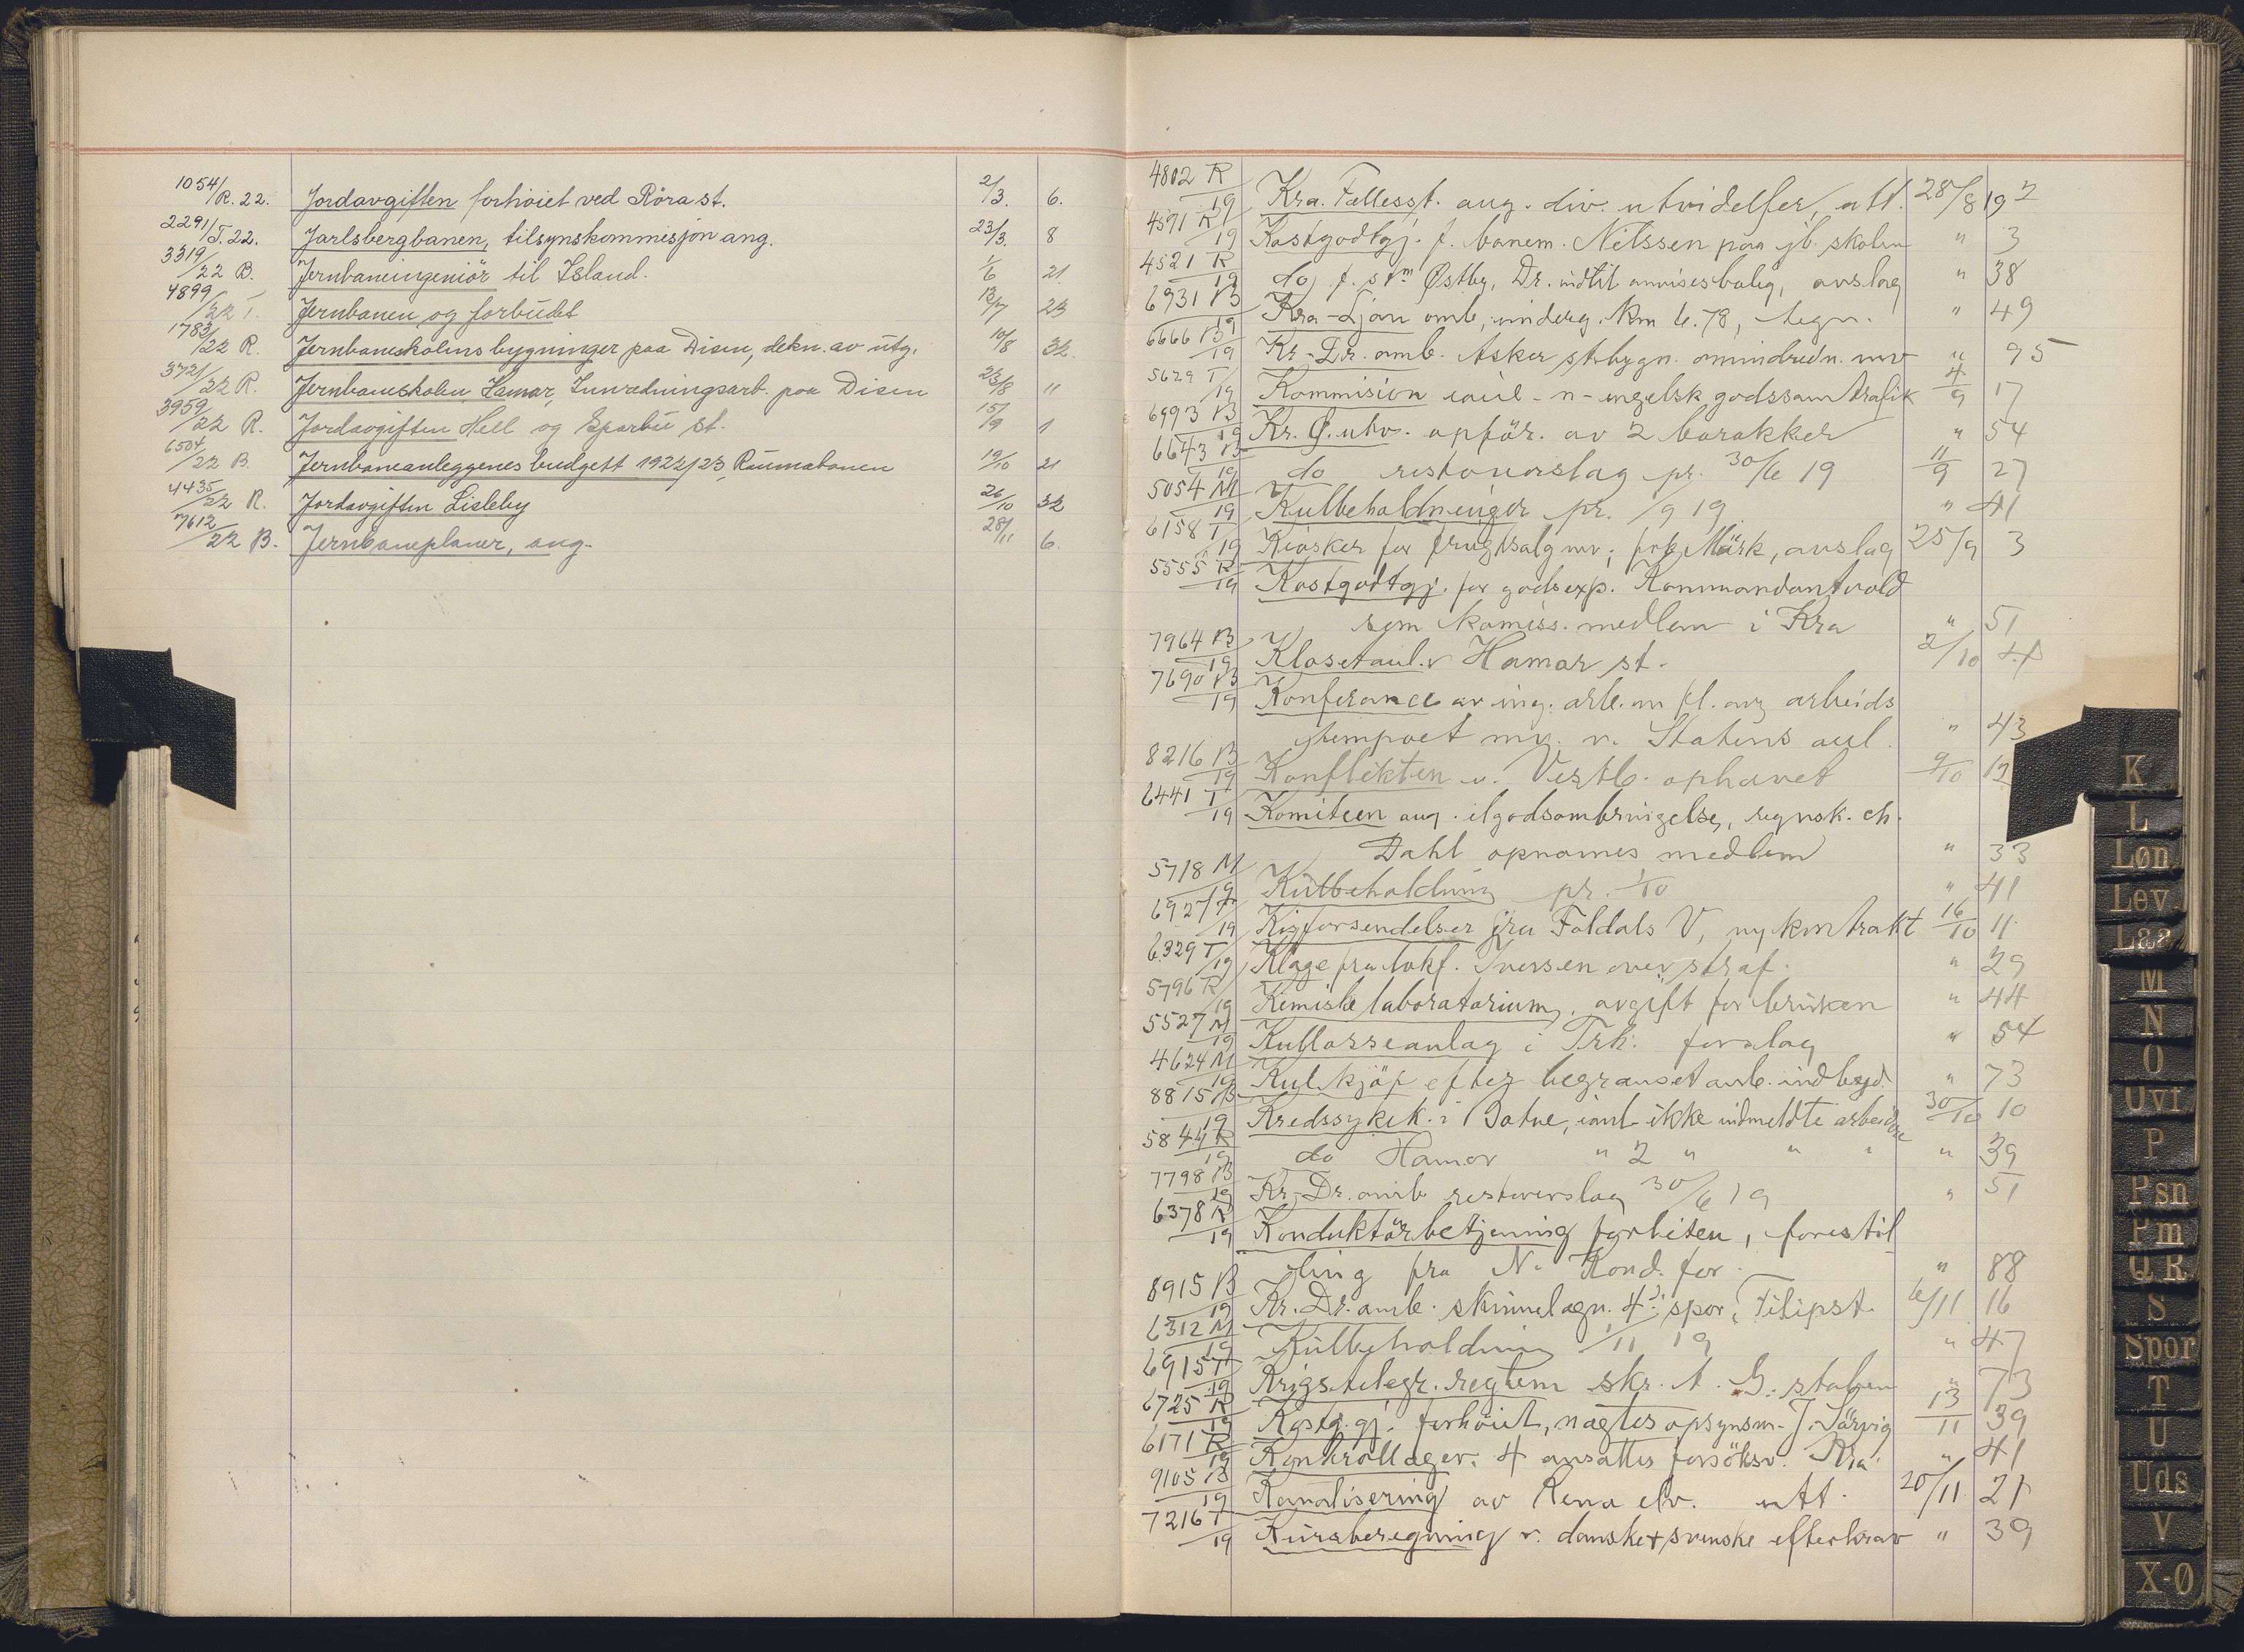 1054/R. 22. Jordavgiften forhöiet ved Röra st. 2/3. 6.
2291/T. 22. Jarlsbergbanen, tilsynskommisjon ang. 23/3. 8
3319/22 B. Jernbaneingeniör til Island. 1/6 21
4899/22 T. Jernbanen og forbudet 13/7 23
1783/22 R. Jernbaneskolens bygninger paa Disen, dekn. av utg. 10/8 32
3721/22 R. Jernbaneskolen Hamar, Innredningsarb. paa Disen 23/8 11
3959/22 R. Jordavgiften Hell og Sparbu st. 15/9 1
6504/22 B. Jernbaneanleggenes budgett 1922/23, Raumabanen 19/10 21
4435/22 R. Jordavgiften Lisleby 26/10 32
7612/22 B. Jernbaneplaner, ang. 28/11 6.
4802 R/19 Kra. Fællesst. ang. div. utvidelser, utt. 28/8 19
4591 R/19 Kostgodtgj. f. banem. Nilssen paa jb. skolen " 3
4521 R/19 do f. stm Østby, Dr. indtil anvises bolig, avslag " 38
6931 B/19 Kra-Ljan omb, underg. km 6.78, tegn. " 49
6666 B/19 Kr-Dr. omb. Asker st. bygn. omindredn. mv " 95
5629 T/19 Kommision i anl - n - engelsk godssamtrafik 4/9 17
6993 B/19 Kr. Ø. utv. opför. av 2 barakker " 54
6643 B/19 do restoverslag pr. 30/6 19 11/9 27
5054 M/19 Kulbeholdninger pr. 1/9 19 " 41
6158 T/19 Kiosker for frugtsalg mv, Mürk, avslag 25/9 3
5555 R/19 Kostgodtgj. for godsexp. Kommandantvold
som komiss. medlem i Kra " 51
7964 B/19 Klosetanl. v Hamar st. 2/10
7690 B/19 Konferance av ing. arb. m fl. ang arbeids
tempoet mv. v. Statens anl. " 43
8216 B/19 Konflikten v. Vestb. ophævet 9/10
6441 T/19 Komiteen ang. ilgodsombringelse, regnsk. ch.
Dahl opnævnes medlem " 33
5718 M/19 Kulbeholdning pr. 1/10 " 41
6927 T/19 Kisforsendelser fra Foldals V, ny kontrakt 16/10 11
6329 T/19 Klage fra lokf. Iversen over straf. " 29
5796 R/19 Kemiske laboratorium, avgift for bruken " 44
5527 M/19 Kullosseanlæg i Trh. forslag " 54
4624 M/19 Kulkjöp efter begrænset anb. indbyd. " 73
8815 B/19 Kredssykek. i Batne, ikke indmeldte arbeidere 30/10 10
5844 R/19 do Hamar " 2 " " " " 39
7798 B/19 Kr-Dr. omb restoverslag 30/6 19 " 51
6378 R/19 Konduktörbetjening forliten, forestil
ling fra N. Kond. for. " 88
8915 B/19 Kr. Dr. omb. skinnelægn. 4. spor, Filipst. 6/11 16
6312 M/19 Kulbeholdning 1/11 19 " 47
6915 T/19 Krigstelegr. reglem skr. t. G. staben " 73
6725 R/19 Kostg.gj. forhöiet, nægtes opsynsm. J. Särvig 13/11 39
6171 R/19 Kontrollager. 4 ansattes forsöksv. Kra. " 41
9105 B/19 Kanalisering av Rena elv. utt. 20/11 21
7216 T/19 Kursberegning v. danske + svenske efterkrav " 39
K
L
Løn
Lev.
Laa
M
N
O
Ovf
P
Psn
Pm
Q R
S
Spor
T
U
Uds
V
X-Ø